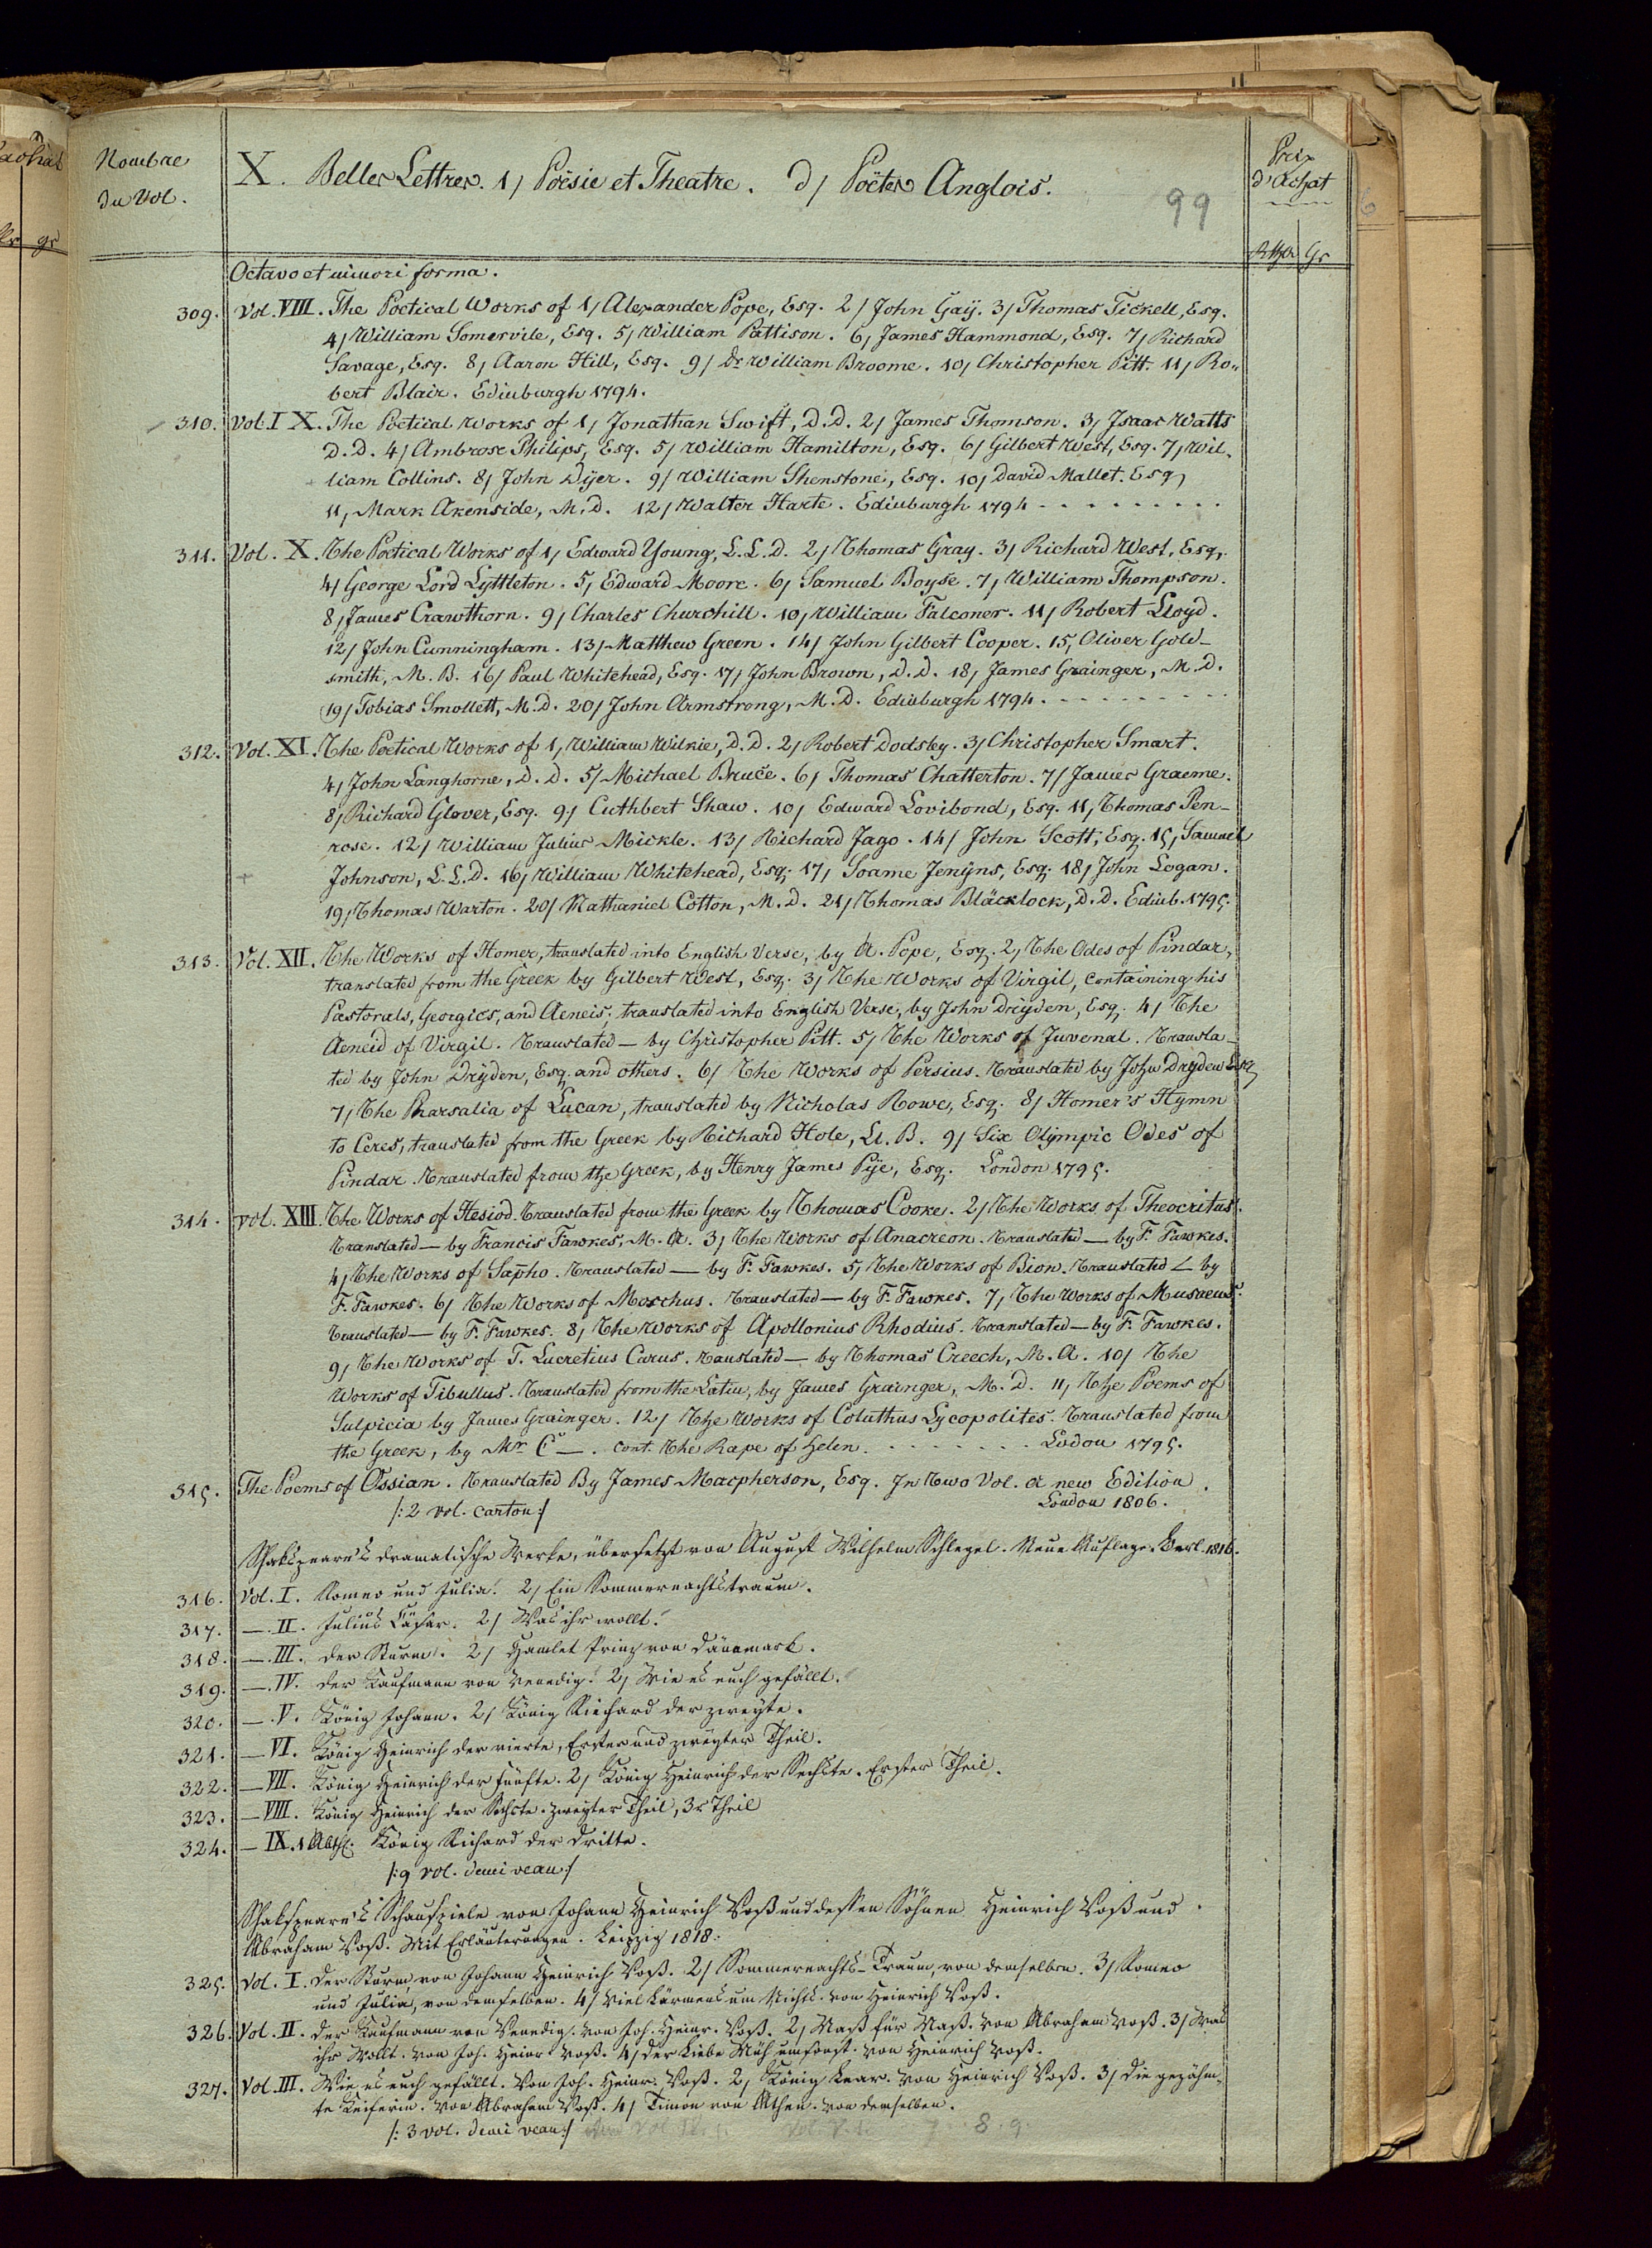 Nombre
du Vol.
X. Belles Lettres. 1/ Poësie et Theatre. d/ Poëtes Anglois.
99
Prix
d'Achat
Rthlr Gr
Octavo et minori forma.
309. Vol. VIII. The Poetical Works of 1/ Alexander Pope, Esq. 2/ John Gaÿ. 3/ Thomas Tickell, Esq.
4/ William Somervile, Esq. 5/ William Pattison. 6/ James Hammond, Esq. 7/ Richard
Savage, Esq. 8/ Aaron Hill, Esq. 9/ Dr William Broome. 10/ Christopher Pitt. 11/ Ro„
bert Blair. Edinburgh 1794.
310. Vol. IX. The Poetical Works of 1/ Jonathan Swift, D.D. 2/ James Thomson. 3/ Isaac Watts
D.D. 4/ Ambrose Philips, Esq. 5/ William Hamilton, Esq. 6/ Gilbert West, Esq. 7/ Wil-
liam Collins. 8/ John Dÿer. 9/ William Shenstone, Esq. 10/ David Mallet. Esq
11/ Mark Akenside, M.D. 12/ Walter Harte. Edinburgh 1794 - - - - - - - - -
311. Vol. X. The Poetical Works of 1/ Edward Young, L.L.D. 2/ Thomas Gray. 3/ Richard West, Esq.
4/ George Lord Lyttleton. 5/ Edward Moore. 6/ Samuel Boyse. 7/ William Thompson.
8/ James Crawthorn. 9/ Charles Churchill. 10/ William Falconer. 11/ Robert Lloyd.
12/ John Cunningham. 13/ Matthew Green. 14/ John Gilbert Cooper. 15/ Oliver Gold-
smith, M.B. 16/ Paul Whitehead, Esq. 17/ John Brown, D.D. 18/ James Grainger, M.D.
19/ Tobias Smollett, M.D. 20/ John Armstrong, M.D. Edinburgh 1794. - - - - - - - -
312. Vol. XI. The Poetical Works of 1/ William Wilkie, D.D. 2/ Robert Dodsley. 3/ Christopher Smart.
4/ John Langhorne, D.D. 5/ Michael Bruce. 6/ Thomas Chatterton. 7/ James Graeme.
8/ Richard Glover, Esq. 9/ Cuthbert Shaw. 10/ Edward Lovibond, Esq. 11/ Thomas Pen-
rose. 12/ William Julius Mickle. 13/ Richard Jago. 14/ John Scott, Esq. 15/ Samuel
Johnson, L.L.D. 16/ William Whitehead, Esq. 17/ Soame Jenÿns, Esq. 18/ John Logan.
19/ Thomas Warton. 20/ Nathaniel Cotton, M.D. 21/ Thomas Blacklock, D.D. Edinb. 1795.
313. Vol. XII. The Works of Homer, translated into English Verse, by A. Pope, Esq. 2/ The Odes of Pindar,
translated from the Greek by Gilbert West, Esq. 3/ The Works of Virgil, containing his
Pastorals, Georgics, and Aeneis; translated into English Verse, by John Drÿden, Esq. 4/ The
Aeneid of Virgil. Translated — by Christopher Pitt. 5/ The Works of Juvenal. Transla-
ted by John Drÿden, Esq. and others. 6/ The Works of Persius. Translated by John Drÿden Esq
7/ The Pharsalia of Lucan, translated by Nicholas Rowe, Esq. 8/ Homer's Hÿmn
to Ceres, translated from the Greek by Richard Hole, Ll. B. 9/ Six Olÿmpic Odes of
Pindar. Translated from the Greek, by Henry James Pÿe, Esq. London 1795.
314. Vol. XIII. The Works of Hesiod. Translated from the Greek by Thomas Cooke. 2/ The Works of Theocritus.
Translated — by Francis Fawkes, M.A. 3/ The Works of Anacreon. Translated — by F. Fawkes.
4/ The Works of Sapho. Translated — by F. Fawkes. 5/ The Works of Bion. Translated — by
F. Fawkes. 6/ The Works of Moschus. Translated — by F. Fawkes. 7/ The Works of Musaeus.
Translated — by F. Fawkes. 8/ The Works of Apollonius Rhodius. Translated — by F. Fawkes.
9/ The Works of T. Lucretius Carus. Tanslated — by Thomas Creech, M.A. 10/ The
Works of Tibullus. Translated from the Latin, by James Grainger, M.D. 11/ The Poems of
Sulpicia by James Grainger. 12/ The Works of Coluthus Lycopolites. Translated from
the Greek, by Mr C — . cont. The Rape of Helen. - - - - - - - Lodon 1795.
315. The Poems of Ossian. Translated By James Macpherson, Esq. In Two Vol. A new Edition.
/: 2 vol. carton :/ London 1806.
Shakspeare's dramatische Werke, übersetzt von August Wilhelm Schlegel. Neue Auflage. Berl. 1816.
316. Vol. I. Romeo und Julia. 2/ Ein Sommernachtstraum.
317. —. II. Julius Cäsar. 2/ Was ihr wollt.
318. —. III. Der Sturm. 2/ Hamlet Prinz von Dännemark.
319. —. IV. Der Kaufmann von Venedig. 2/ Wie es euch gefällt.
320. —. V. König Johann. 2/ König Riechard der zweyte.
321. — VI. König Heinrich der vierte, Erster und zweyter Theil.
322. — VII. König Heinrich der Fünfte. 2/ König Heinrich der Sechste. Erster Theil.
323. — VIII. König Heinrich der Sechste. zweyter Theil, 3r Theil
324. — IX. 1 Abth. König Richard der Dritte.
/: 9 vol. demi veau :/
Shakspeare's Schauspiele von Johann Heinrich Voß und dessen Söhnen Heinrich Voß und
Abraham Voß. Mit Erläuterungen. Leipzig 1818.
325. Vol. I. Der Sturm von Johann Heinrich Voß. 2/ Sommernachts-Traum, von demselben. 3/ Romeo
und Julia, von demselben. 4/ Viel Lärmens um Nichts. von Heinrich Voß.
326. Vol. II. Der Kaufmann von Venedig. von Joh. Heinr. Voß. 2/ Maß für Maß. von Abraham Voß. 3/ Was
ihr Wollt. von Joh. Heinr. Voß. 4/ Der Liebe Müh umsonst. von Heinrich Voß.
327. Vol. III. Wie es euch gefällt. Von Joh. Heinr. Voß. 2/ König Lear. von Heinrich Voß. 3/ Die gezähm-
te Keiferin. von Abraham Voß. 4/ Timon von Athen. von demselben.
/: 3 vol. demi veau :/ 7. 8. 9.